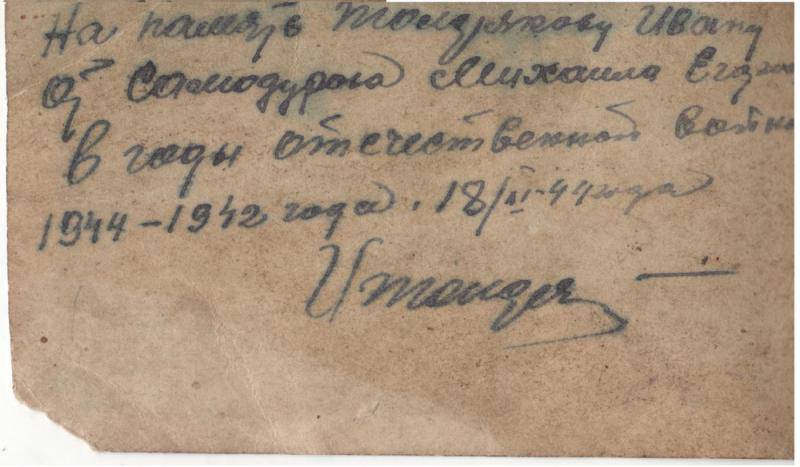 На память Тондрякову Ивану
от Самодурова Михаила
в годы отечественной войны
1944-1942 года. 18/II-44 года